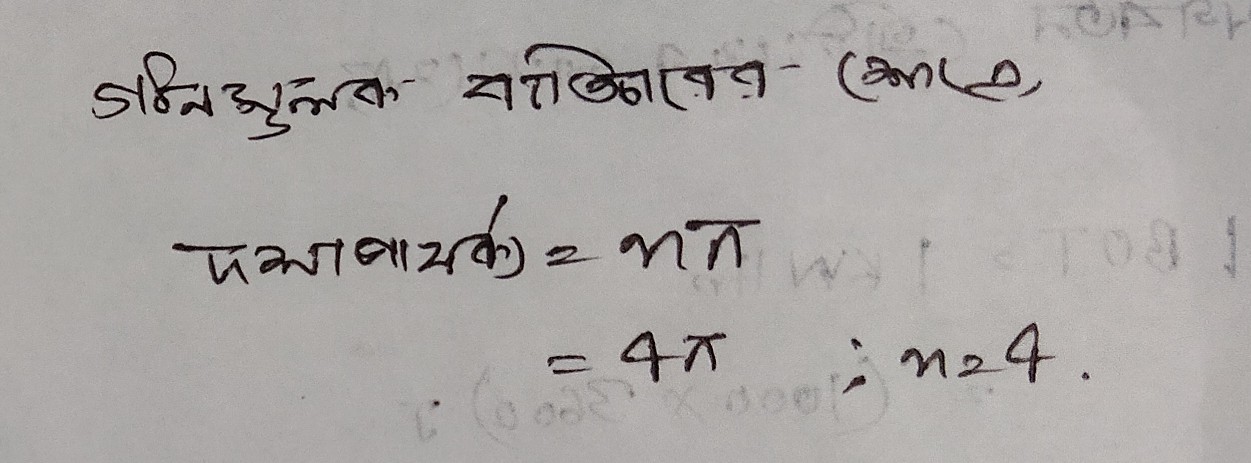 গঠনমূলক ব্যতিচারের ক্ষেত্রে,
দশা পার্থক্য = nπ
= 4π ; n=4.